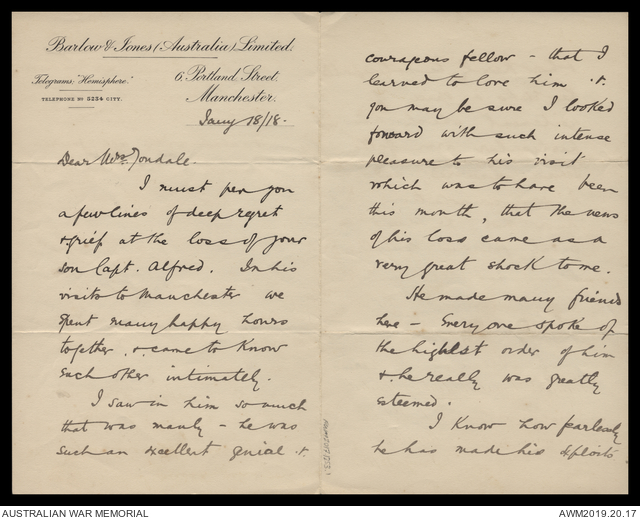 Barlow & Jones (Australia) Limited.
Telegrams: "Hemisphere."
TELEPHONE No 5254 CITY.
6 Portland Street,
Manchester.
Jany 18/18.
Dear Mrs Tondale.
I must pen you
a few lines of deep regret
& grief at the loss of your
son Capt. Alfred. In his
visits to Manchester we
spent many happy hours
together & came to know
each other intimately.
I saw in him so much
that was manly – he was
such an excellent genial &
courageous fellow – that I
learned to love him &
you may be sure I looked
forward with such intense
pleasure to his visit
which was to have been
this month, that the news
of his loss came as a
very great shock to me.
He made many friends
here – Every one spoke of
the highest order of him
& he really was greatly
esteemed.
I know how fearlessly
he has made his exploits
AUSTRALIAN WAR MEMORIAL
AWM2019.20.17